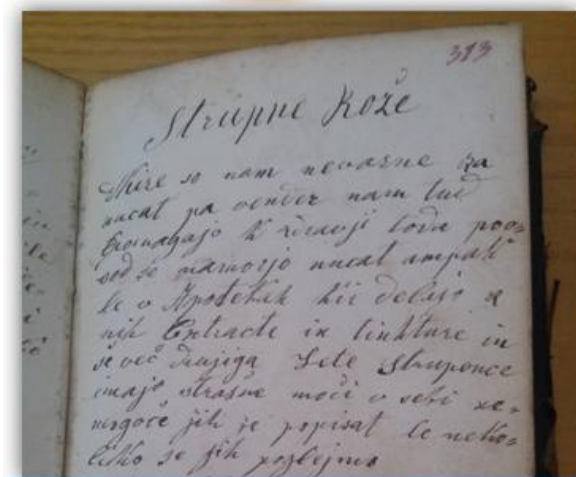 313
Strupne Rože
Ktire so nam nevarne za
nucat pa vender nam tud
pomagajo k zdravji toda pov=
sod se namorjo nucat ampak
le v Apotekah kir delajo z
nih Extracte in tinkture in
še več drujiga Lete Strupence
imajo strašne moči v sebi ne=
mogoče jih je popisat le neko=
liko se jih